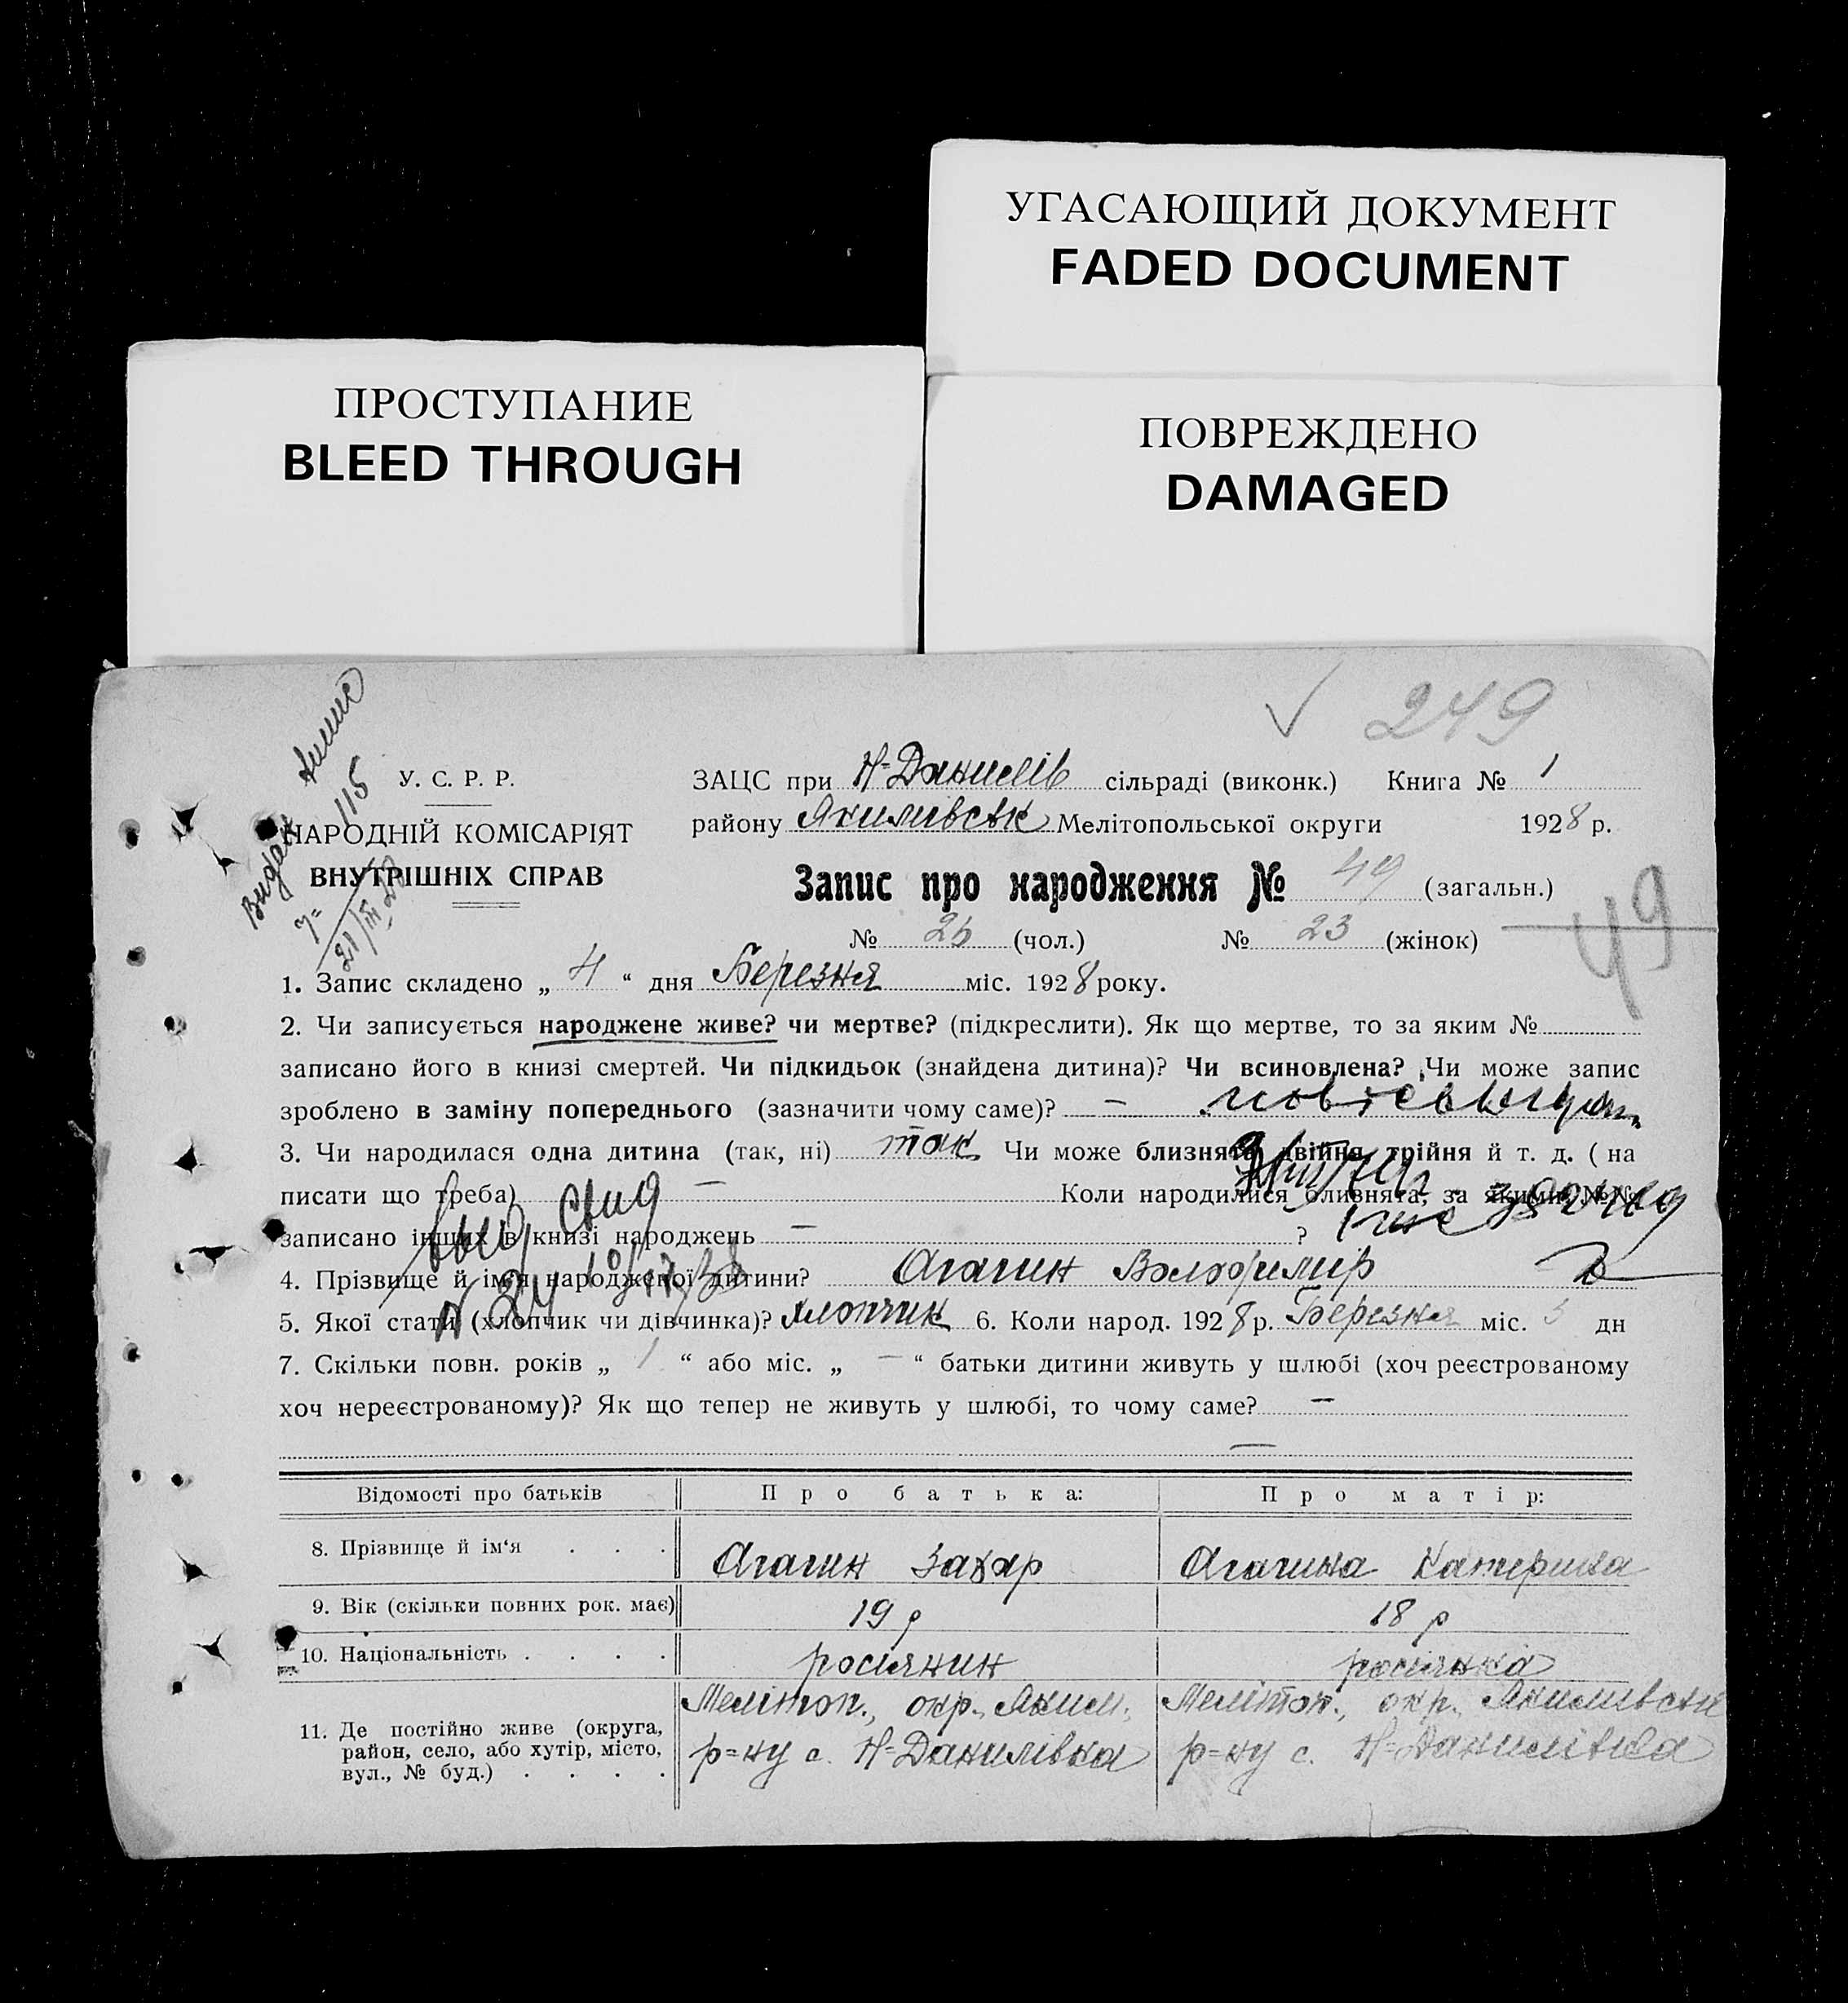 УГАСАЮЩИЙ ДОКУМЕНТ
FADED DOCUMENT
ПРОСТУПАНИЕ
BLEED THROUGH
ПОВРЕЖДЕНО
DAMAGED
249
115
У. С. Р. Р.
НАРОДНІЙ КОМІСАРІЯТ
ВНУТРІШНІХ СПРАВ
ЗАЦС при Н-Данилів сільраді (виконк.) Книга № 1
району Якимівськ Мелітопольської округи 1928 р.
Запис про народження № 49 (загальн.)
49
№ 26 (чол.) № 23 (жінок)
1. Запис складено „ 4 “ дня Березня міс. 1928 року.
2. Чи записується народжене живе? чи мертве? (підкреслити). Як що мертве, то за яким №
записано його в книзі смертей. Чи підкидьок (знайдена дитина)? Чи всиновлена? Чи може запис
зроблено в заміну попереднього (зазначити чому саме)? —
3. Чи народилася одна дитина (так, ні) так Чи може близнята, двійня, трійня й т. д. ( на
писати що треба) — Коли народилися близнята, за якими №№
записано інших в книзі народжень — ?
4. Прізвище й ім'я народженої дитини? Агагин Володимир
5. Якої статі (хлопчик чи дівчинка)? хлопчик 6. Коли народ. 1928 р. Березня міс. 3 дн
7. Скільки повн. років „ 1 “ або міс. „ — “ батьки дитини живуть у шлюбі (хоч реєстрованому
хоч нереєстрованому)? Як що тепер не живуть у шлюбі, то чому саме? —
—
Відомості про батьків Про батька: Про матір:
8. Прізвище й ім‘я . . . Агагин Захар Агагина Катерина
9. Вік (скільки повних рок. має) 19 р 18 р
10. Національність . . . . росіянин росіянка
11. Де постійно живе (округа, район, село, або хутір, місто, вул., № буд.) . . . .
Мелітоп., окр., Яким.,
р=ну с. Н=Данилівка
Мелітоп., окр., Якимівськ
р=ну с. Н=Данилівка